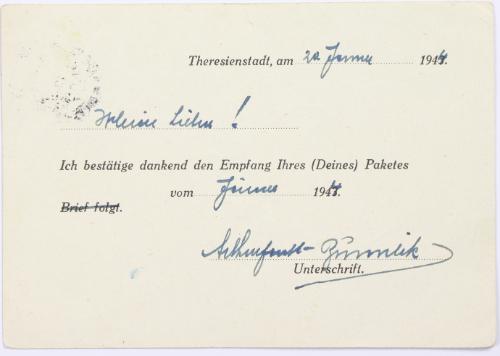 Theresienstadt, am 20 Jänner 1944.
Meine Lieben!
Ich bestätige dankend den Empfang Ihres (Deines) Paketes
vom Jänner 1944.
Brief folgt.
Unterschrift.